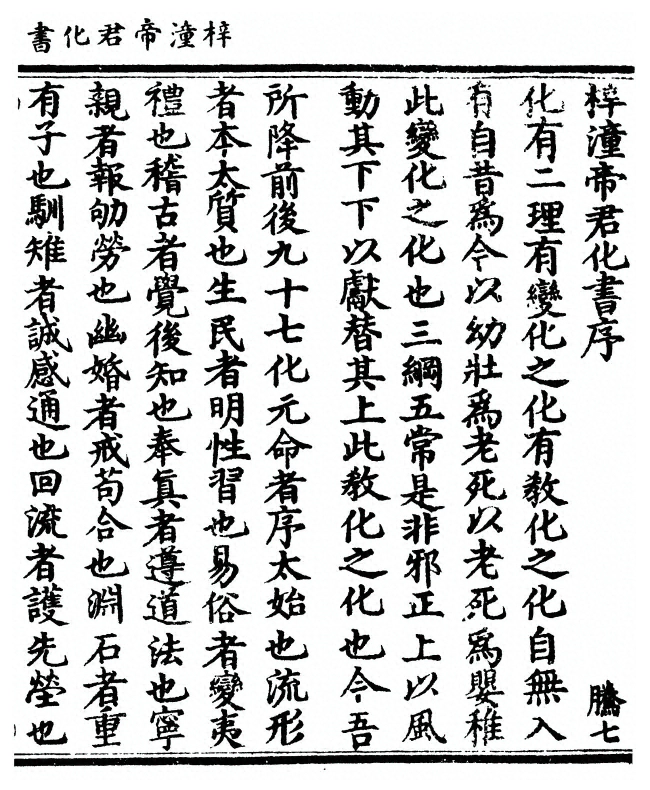 梓潼帝君化書
梓潼帝君化書序 騰七
化有二理有變化之化有教化之化自無入
有自昔爲今以幼壯爲老死以老死爲嬰稚
此變化之化也三綱五常是非邪正上以風
動其下下以獻替其上此教化之化也今吾
所降前後九十七化元命者序太始也流形
者本太質也生民者明性習也易俗者變夷
禮也稽古者覺後知也奉眞者遵道法也寧
親者報劬勞也幽婚者戒苟合也淵石者重
有子也馴雉者誠感通也回流者護先塋也